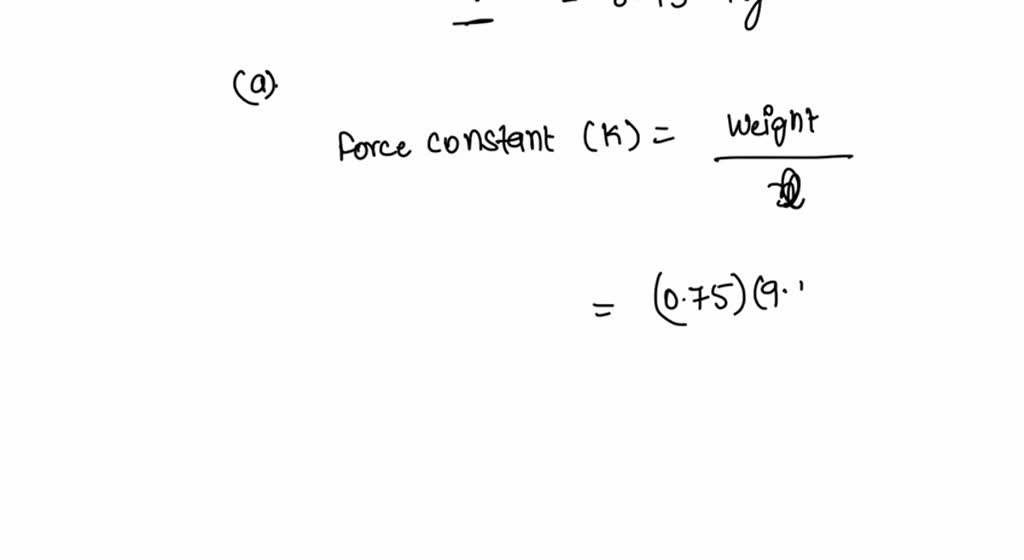 (a).
force constant (K) = weight
= (0.75)(9.